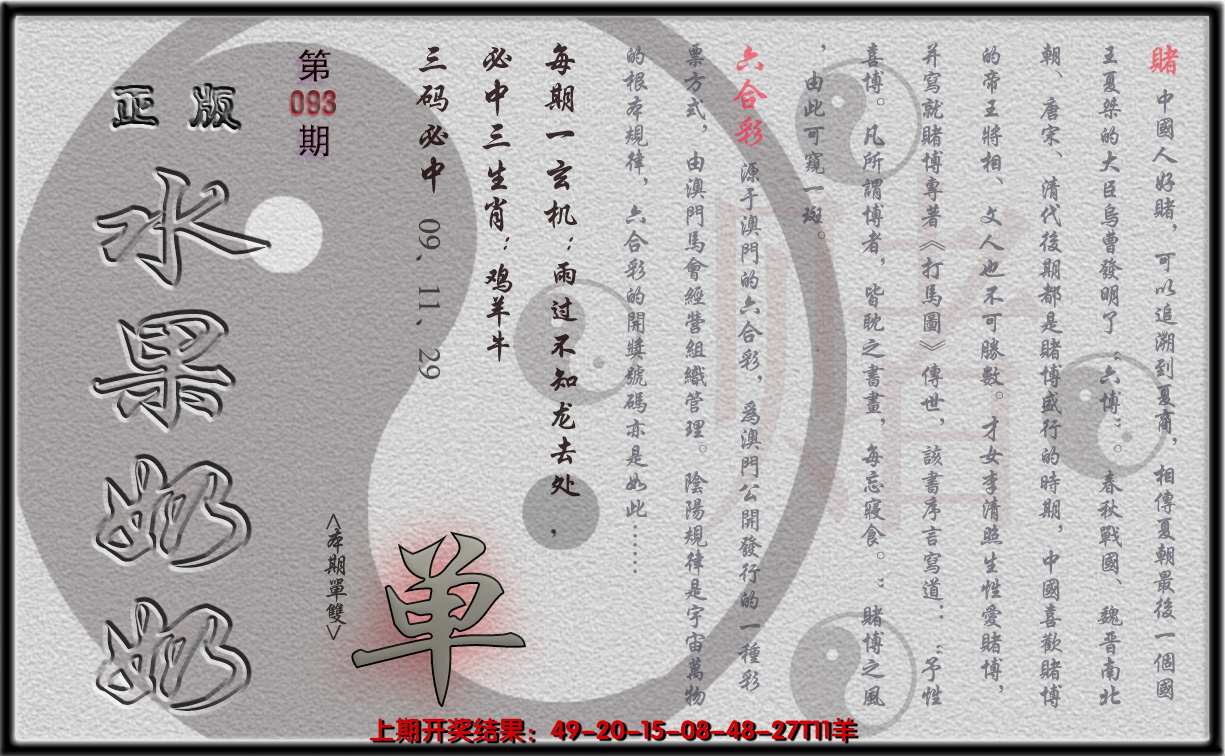 賭 中國人好賭，可以追溯到夏商，相傳夏朝最後一個國
王夏桀的大臣烏曹發明了“六博”。春秋戰國、魏晉南北
朝、唐宋、清代後期都是賭博盛行的時期，中國喜歡賭博
的帝王將相、文人也不可勝數。才女李清照生性愛賭博，
并寫就賭博專著《打馬圖》傳世，該書序言寫道：“予性
喜博。凡所謂博者，皆耽之書畫，每忘寢食。”賭博之風
，由此可窺一斑。
六合彩 源于澳門的六合彩，爲澳門公開發行的一種彩
票方式，由澳門馬會經營組織管理。陰陽規律是宇宙萬物
的根本規律，六合彩的開獎號碼亦是如此……
每期一玄机：雨过不知龙去处，
必中三生肖：鸡羊牛
三码必中 09.11.29
第
093
期
正版
水果奶奶
<本期單雙>
单
赌
上期开奖结果：49-20-15-08-48-27T11羊